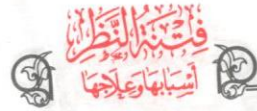 فِتْنَةُ النَّظَرِ
أَسْبَابُهَا وَعِلَاجُهَا